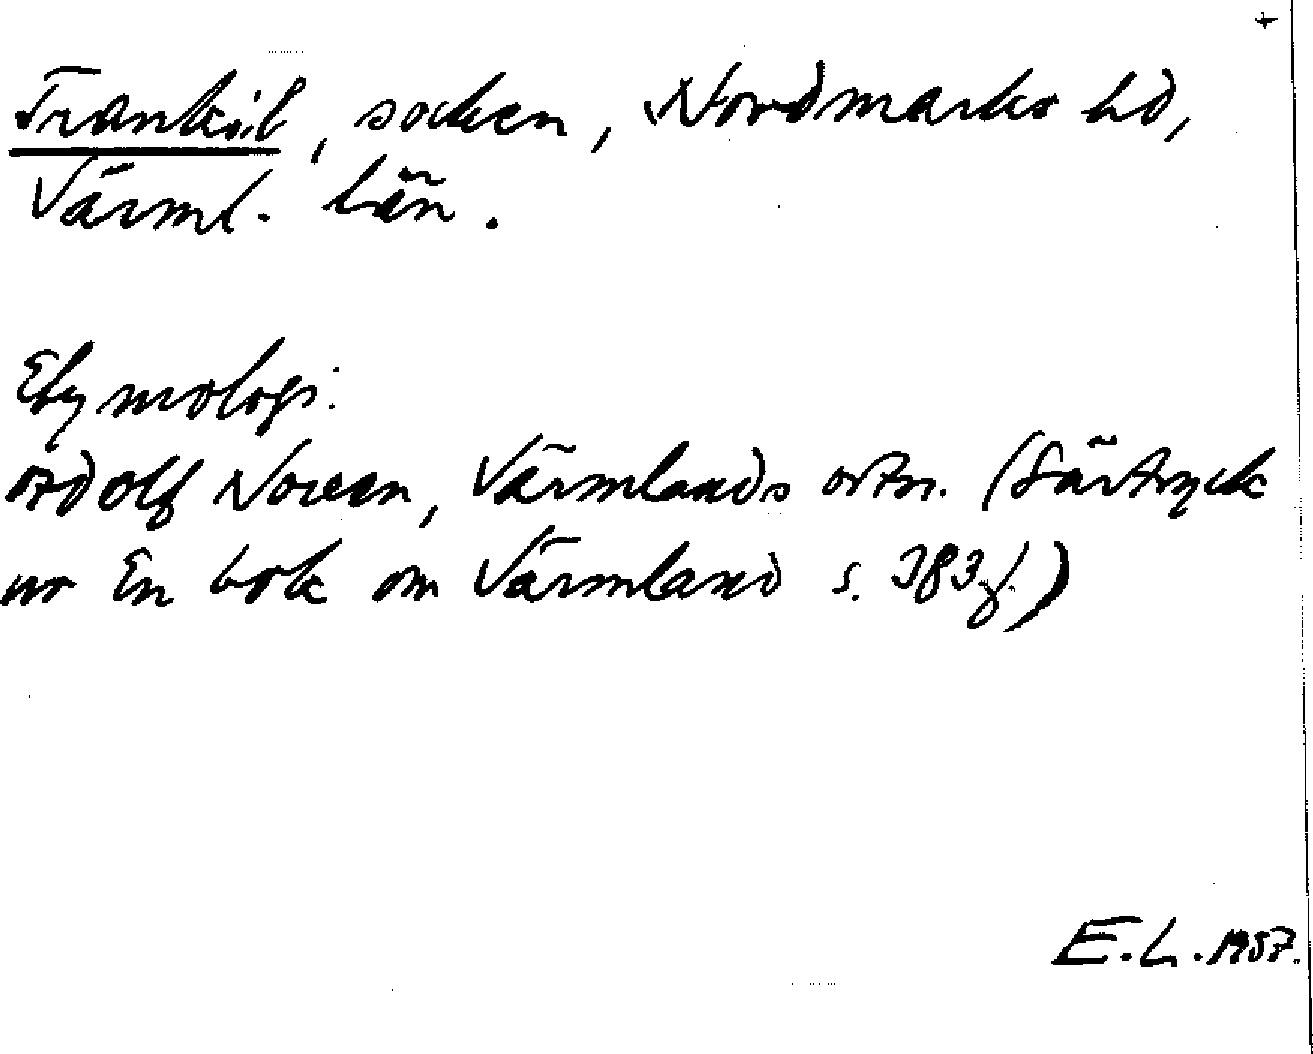 +
Trankil, socken, Nordmarks hd,
Värml. län.
Etymologi:
Adolf Noreen, Värmlands ortn. (Särtryck
ur En bok om Värmland s. 383 f.)
E.L. 1957.